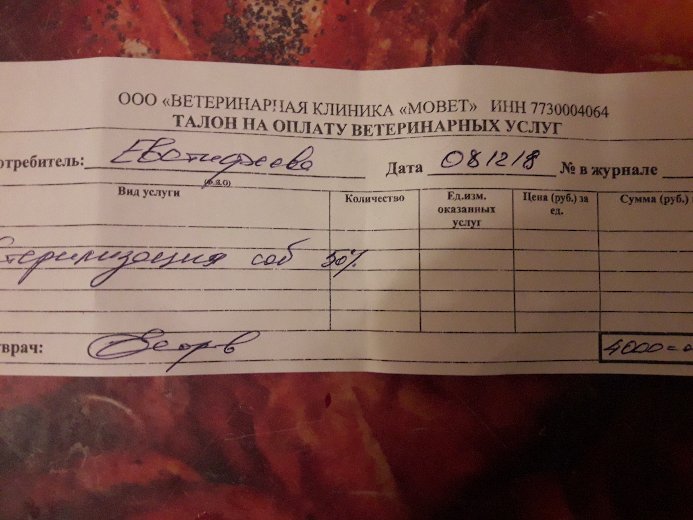 ООО «ВЕТЕРИНАРНАЯ КЛИНИКА «МОВЕТ» ИНН 7730004064
ТАЛОН НА ОПЛАТУ ВЕТЕРИНАРНЫХ УСЛУГ
отребитель: Дата 081218 № в журнале
(Ф.И.О)
Вид услуги Количество Ед.изм. оказанных услуг Цена (руб.) за ед. Сумма (руб.)
стерилизация соб 50%
тврач: 4000=